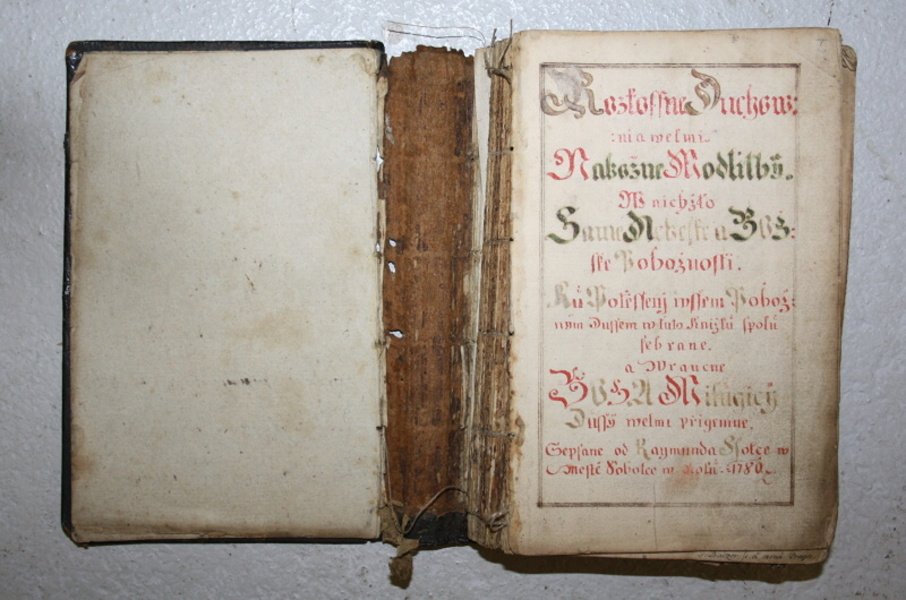 Rozkossne Duchow:
:nia welmi
Nabožne Modlitbÿ.
W nichžto
Samé Nebeské a Bož:
ské Pobožnosti.
Ku Potěssenj wssem Pobož:
ným Dussem w tuto Knižku spolu
sebrane.
a Wraucne
BOHA Milugicÿ
Dussÿ welmi přigemne,
Sepsane od Raymunda w
Městě Sobotce w Roku 1780.